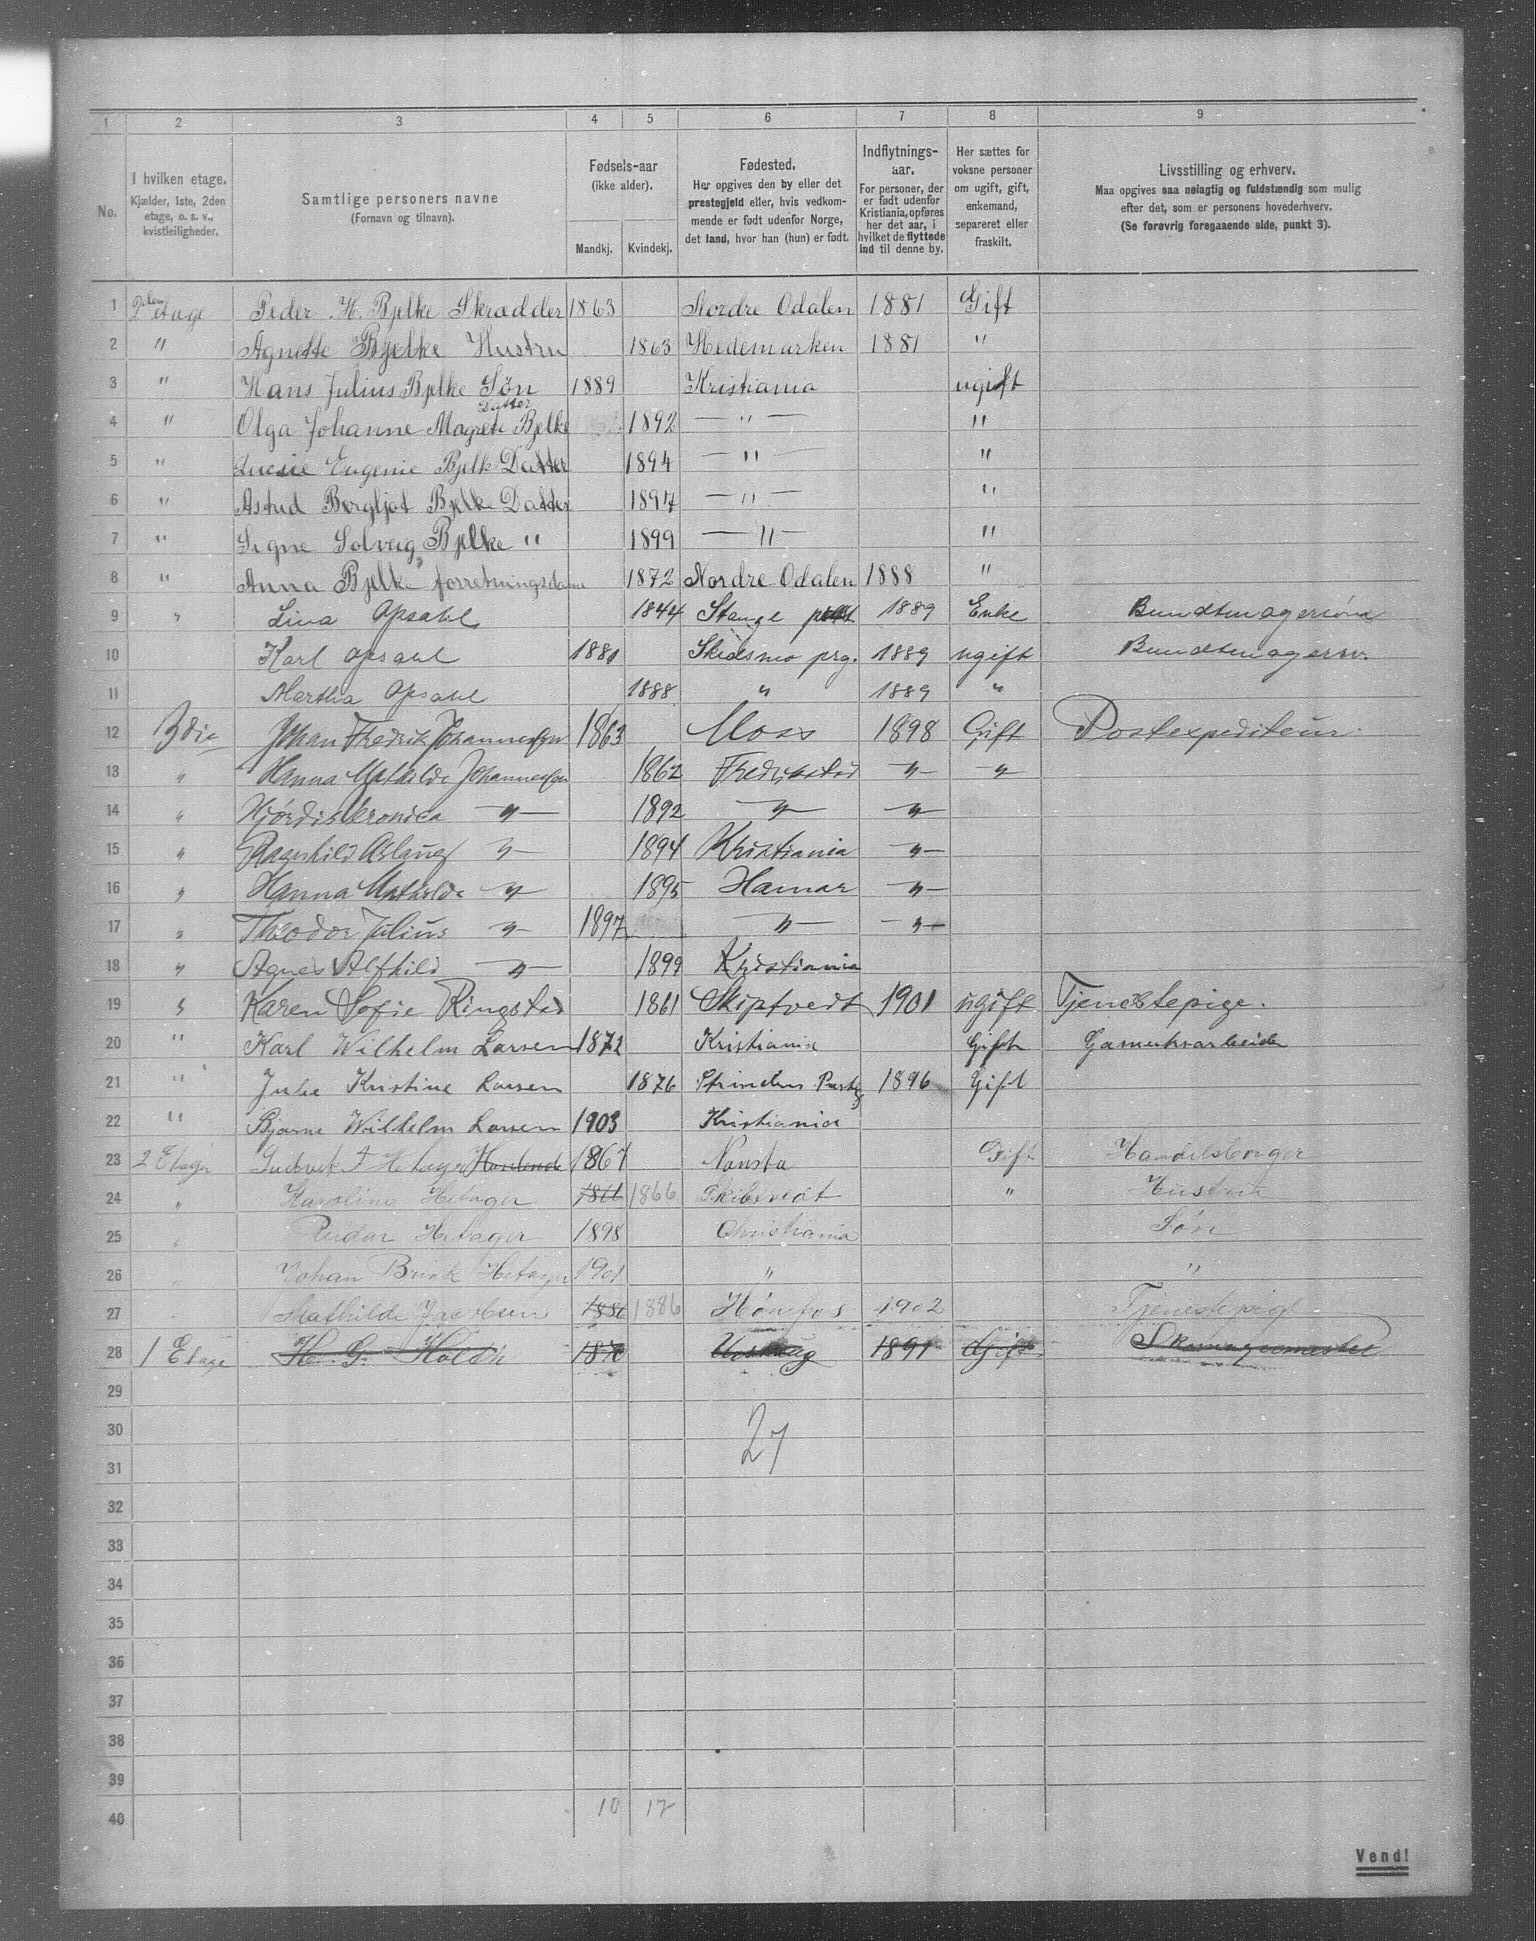 1 2 3 4 5 6 7 8 9
No.
I hvilken etage.
Kjælder, 1ste, 2den
etage, o. s. v.,
kvistleiligheder.
Samtlige personers navne
(Fornavn og tilnavn).
Fødsels-aar
(ikke alder).
Mandkj. Kvindekj.
Fødested.
Her opgives den by eller det
prestegjeld eller, hvis vedkom-
mende er født udenfor Norge,
det land, hvor han (hun) er født.
Indflytnings-
aar.
For personer, der
er født udenfor
Kristiania, opføres
her det aar, i
hvilket de flyttede
ind til denne by.
Her sættes for
voksne personer
om ugift, gift,
enkemand,
separeret eller
fraskilt.
Livsstilling og erhverv.
Maa opgives saa nøiagtig og fuldstændig som mulig
efter det, som er personens hovederhverv.
(Se forøvrig foregaaende side, punkt 3).
1 2den etage Peder H. Bjelke Skrædder 1863 Nordre Odalen 1881 Gift
2 " Agnette Bjelke Hustru 1863 Hedemarken 1881 "
3 " Hans Julius Bjelke Søn 1889 Kristiania ugift
Datter
4 " Olga Johanne Magrete Bjelke 1892 — " — "
5 " Lucie Eugenie Bjelk Datter 1894 — " — "
6 " Astrid Bergljot Bjelke Datter 1897 — " — "
7 " Signe Solveig Bjelke " 1899 — " — "
8 " Anna Bjelke forretningsdame 1872 Nordre Odalen 1888 "
9 " Lina Opsahl 1844 Stange 1889 Enke
10 Karl Opsahl 1881 Skidsmo prg. 1889 ugift
11 Martha Opsahl 1888 " 1889 "
12 3die Johan Fredrik Johannessen 1863 Moss 1898 Gift Postexpediteur.
13 " Hanna Mathilde Johannessen 1862 Fredrikstad " "
14 " Hjørdis Veronica — " — 1892 " "
15 " Ragnhild Aslaug " 1894 Kristiania "
16 " Hanna Mathilde " 1895 Hamar "
17 " Theodor Julius " 1897 " "
18 " Agnes Alfhild " 1899 Kristiania
19 " Karen Sofie Ringstad 1861 Skiptvedt 1901 ugift Tjenestepige.
20 " Karl Wilhelm Larsen 1872 Kristiania Gift Gasverksarbeider
21 " Julie Kristine Larsen 1876 Strinden 1896 Gift
22 " Bjarne Wilhelm Larsen 1903 Kristiania
23 2 Etage Hetager 1867 Gift Handelsborger
24 " Karoline Hetager 1866 1866 Skibtvedt " Hustru
25 " Reidar Hetager 1898 Christiania Søn
26 " Johan Brink Hetager 1901 " "
27 Mathilde Jacobsen 1886 1886 Hønefos 1902 Tjenestepige
28 1 Etage H. G. Holth 1870 1891 Gift Skomagermester
29
30
27
31
32
33
34
35
36
37
38
39
40 10 17
Vend!